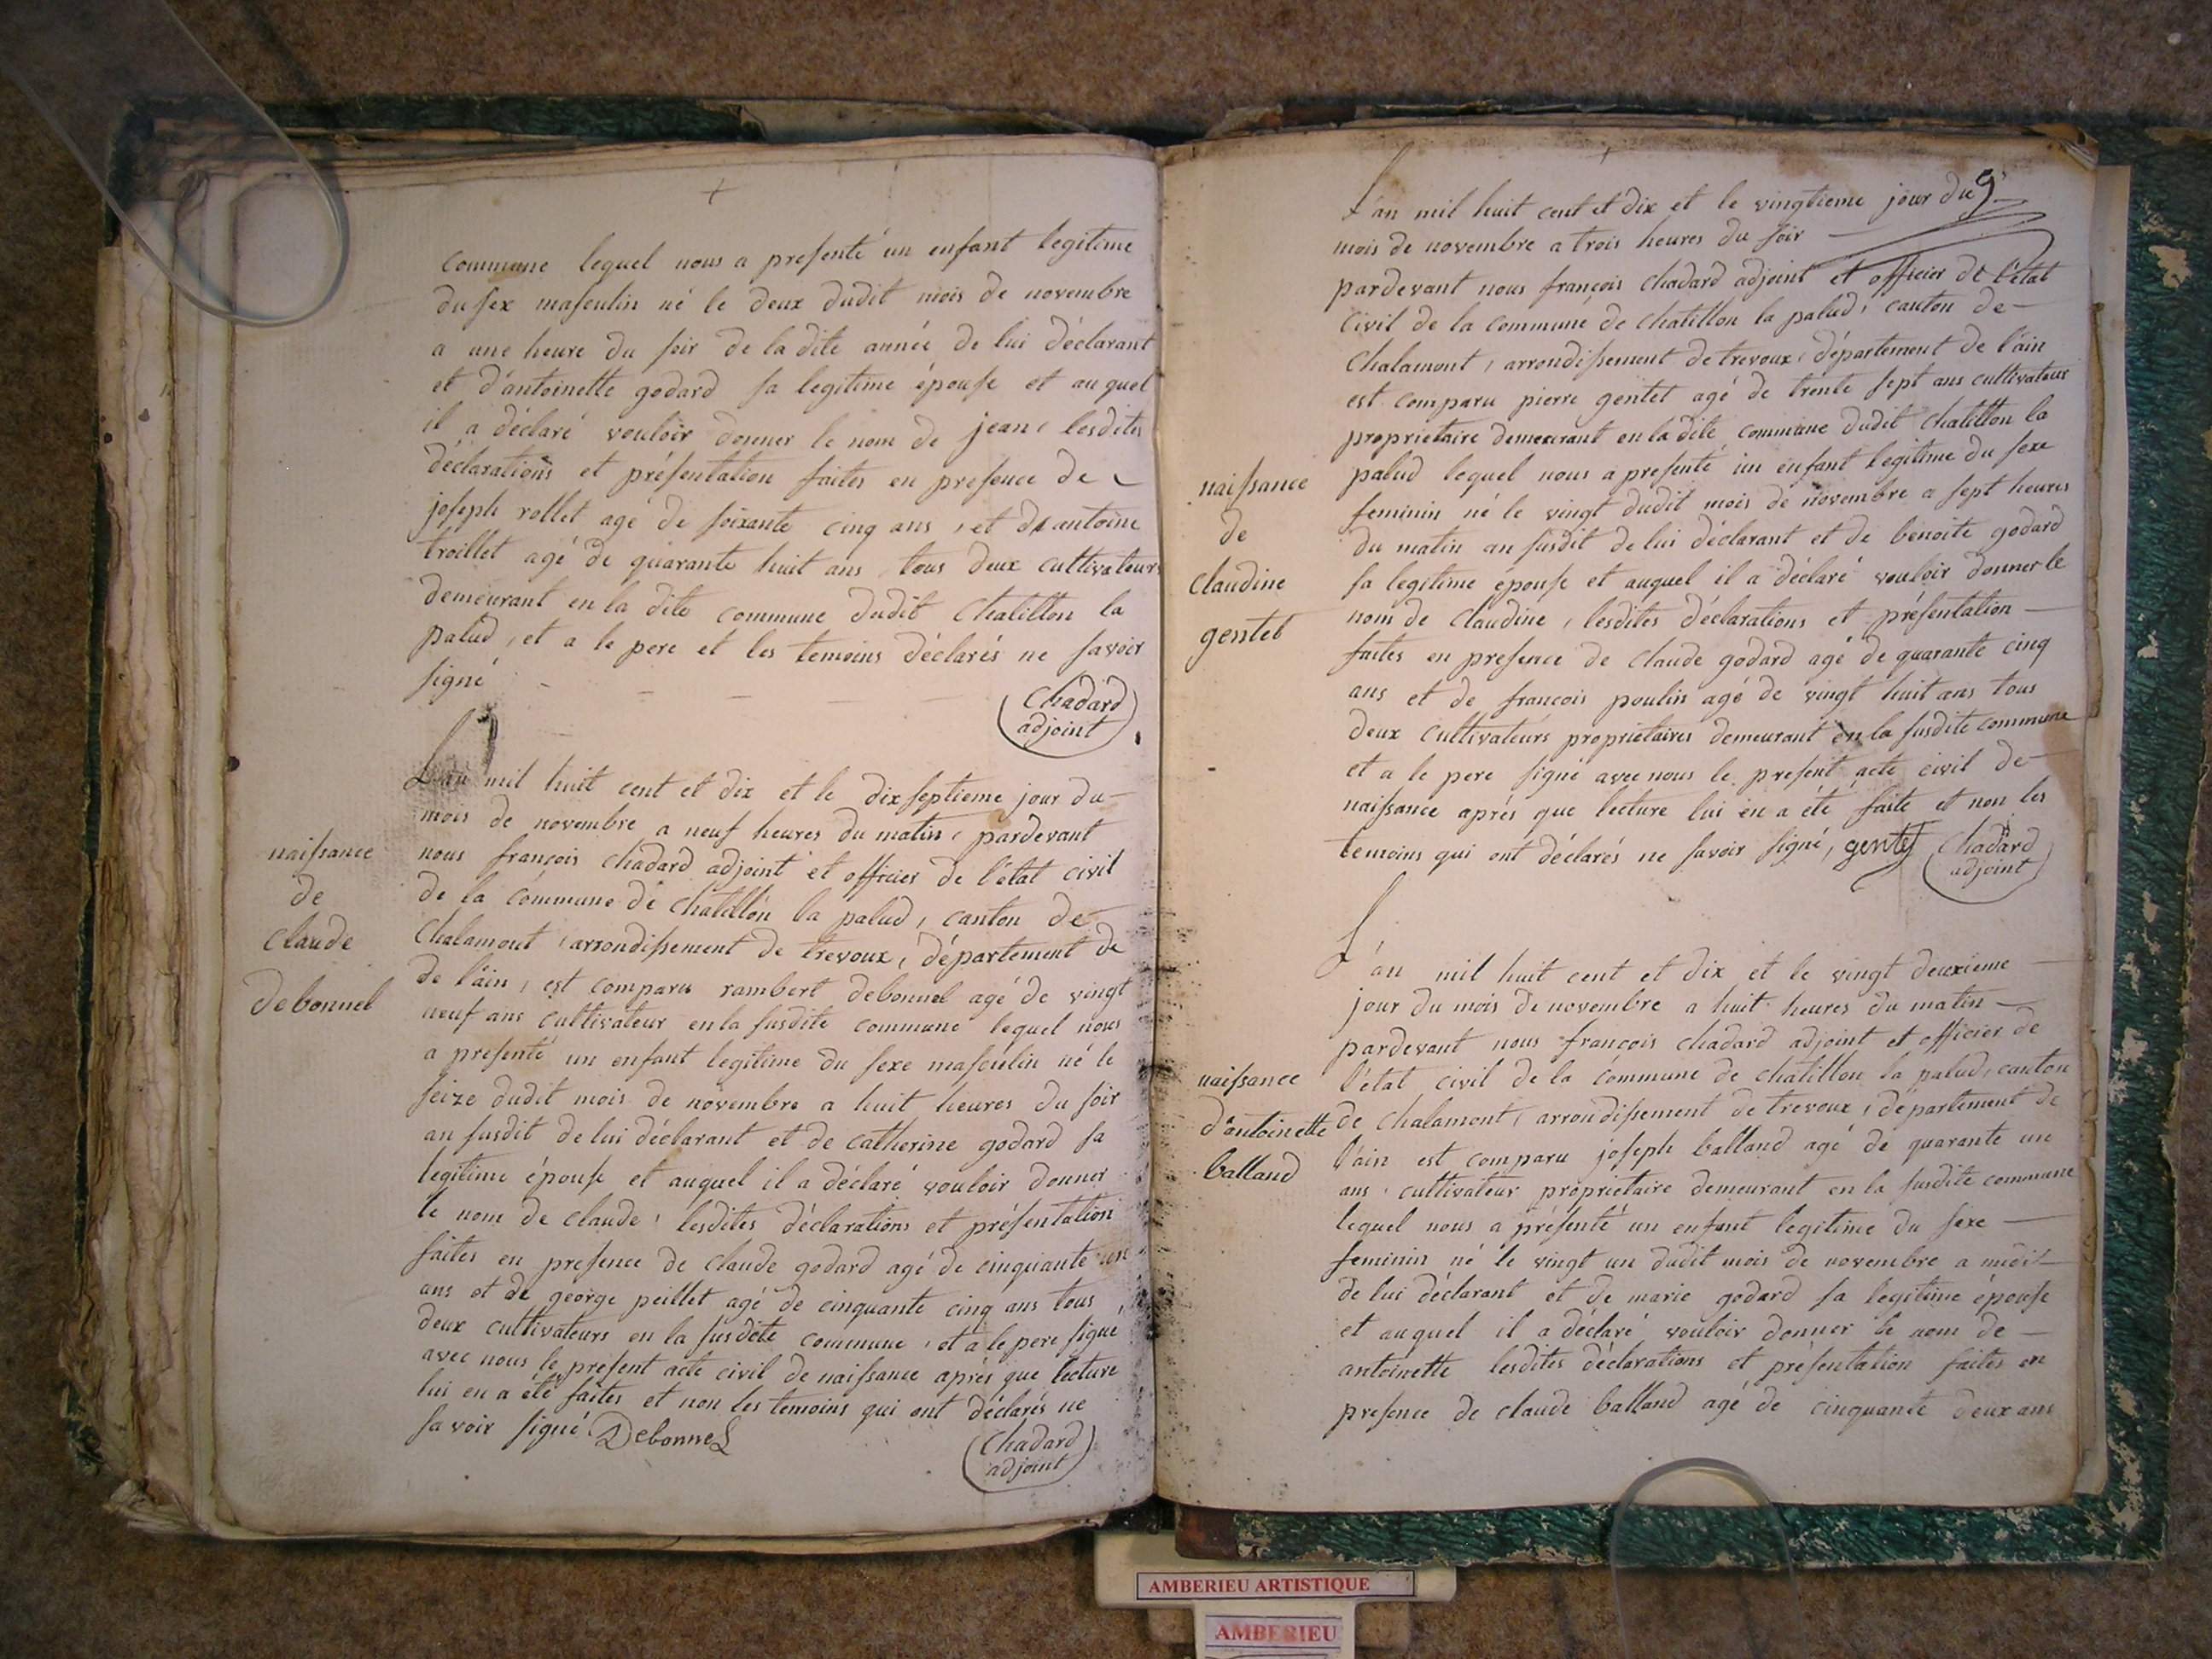 commune lequel nous a presenté un enfant legitime
du sex masculin né le deux dudit mois de novembre
a une heure du soir de la dite année de lui déclarant
et d'antoinette godard sa legitime épouse et auquel
il a déclaré vouloir donner le nom de jean, lesdites
déclarations et présentation faites en presence de
joseph rollet agé de soixante cinq ans, et de antoine
troillet agé de quarante huit ans tous deux cultivateurs
demeurant en la dite commune dudit chatillon la
palud, et a le pere et les temoins déclarés ne savoir
signé
Chadard
adjoint
L'an mil huit cent et dix et le dix septieme jour du
mois de novembre a neuf heures du matin, pardevant
nous françois chadard adjoint et officier de l'état civil
de la commune de chatillon la palud, canton de
Chalamont, arrondissement de trevoux, département de
de l'ain, est comparu rambert debonnel agé de vingt
neuf ans cultivateur en la susdite commune lequel nous
a presenté un enfant legitime du sexe masculin né le
seize dudit mois de novembre a huit heures du soir
an susdit de lui déclarant et de catherine godard sa
legitime épouse et auquel il a déclaré vouloir donner
le nom de claude, lesdites déclarations et présentation
faites en presence de claude godard agé de cinquante un
ans et de george peillet agé de cinquante cinq ans tous
deux cultivateurs en la susdite commune, et a le pere signé
avec nous le present acte civil de naissance aprés que lecture
lui en a été faites et non les temoins qui ont déclarés ne
savoir signé Debonnel
Chadard
adjoint
naissance
de
claude
debonnel
9
L'an mil huit cent et dix et le vingtieme jour du
mois de novembre a trois heures du soir
pardevant nous françois chadard adjoint et officier de l'état
civil de la commune de chatillon la palud, canton de
Chalamont, arrondissement de trevoux, département de l'ain
est comparu pierre gentet agé de trente sept ans cultivateur
proprietaire demeurant en la dite commune dudit chatillon la
palud lequel nous a presenté un enfant legitime du sexe
feminin né le vingt dudit mois de novembre a sept heures
du matin an susdit de lui déclarant et de benoite godard
sa legitime épouse et auquel il a déclaré vouloir donner le
nom de claudine, lesdites déclarations et présentation
faites en presence de claude godard agé de quarante cinq
ans et de françois poulin agé de vingt huit ans tous
deux cultivateurs proprietaires demeurant en la susdite commune
et a le pere signé avec nous le present acte civil de
naissance aprés que lecture lui en a été faite et non les
temoins qui ont déclarés ne savoir signé, gentet Chadard
adjoint
naissance
de
claudine
gentet
L'an mil huit cent et dix et le vingt deuxieme
jour du mois de novembre a huit heures du matin
pardevant nous françois chadard adjoint et officier de
l'état civil de la commune de chatillon la palud, canton
de chalamont, arrondissement de trevoux, département de
l'ain est comparu joseph balland agé de quarante un
ans, cultivateur proprietaire demeurant en la susdite commune
lequel nous a présenté un enfant legitime du sexe
feminin né le vingt un dudit mois de novembre a midi
de lui déclarant et de marie godard sa legitime épouse
et auquel il a déclaré vouloir donner le nom de
antoinette lesdites déclarations et présentation faites en
presence de claude balland agé de cinquante deux ans
naissance
d'antoinette
balland
AMBERIEU ARTISTIQUE
AMBERIEU